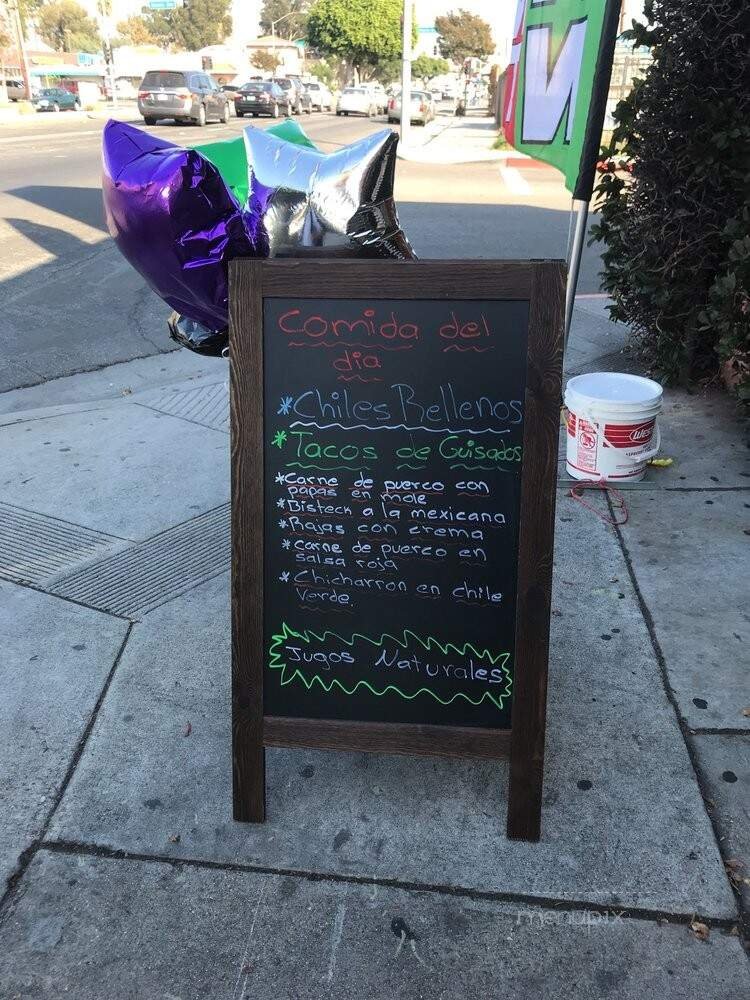 Comida del
dia
*Chiles Rellenos
*Tacos de Guisados
*Carne de puerco con
papas en mole
*Bisteck a la mexicana
*Rajas con crema
*Carne de puerco en
salsa roja
*Chicharron en chile
Verde.
Jugos Naturales
N
menupix